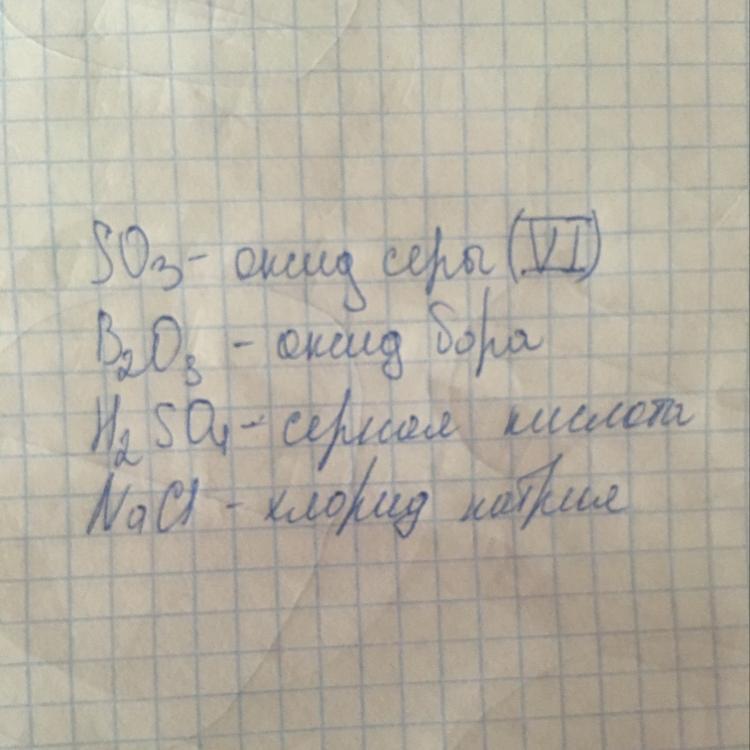 SO₃ - оксид серы (VI)
B₂O₃ - оксид бора
H₂SO₄ - серная кислота
NaCl - хлорид натрия